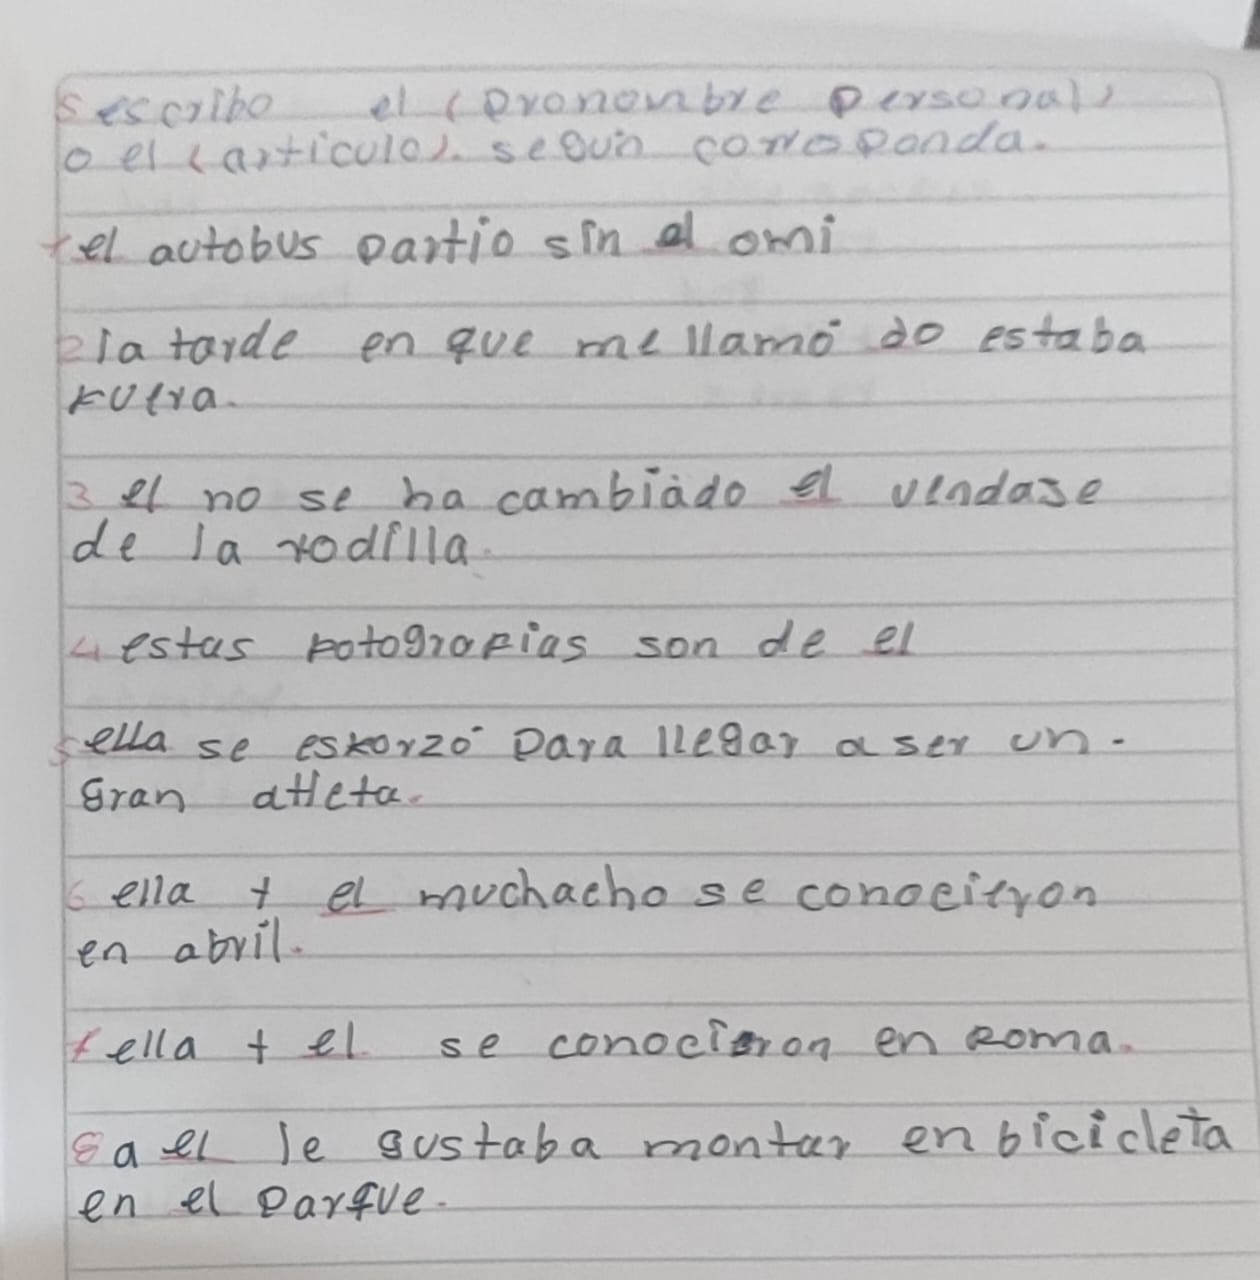 5 escribo el (pronombre personal)
o el (articulo). según corrosponda.
1 el autobus partio sin el omi
2 la tarde en que me llamó do estaba
fuera.
3 el no se ha cambiado el vendase
de la rodilla.
4 estas fotografias son de el
5 ella se esforzó para llegar a ser un.
gran atleta.
6 ella y el muchacho se conocieron
en abril.
7 ella y el se conocieron en Roma.
8 a el le gustaba montar en bicicleta
en el parque.